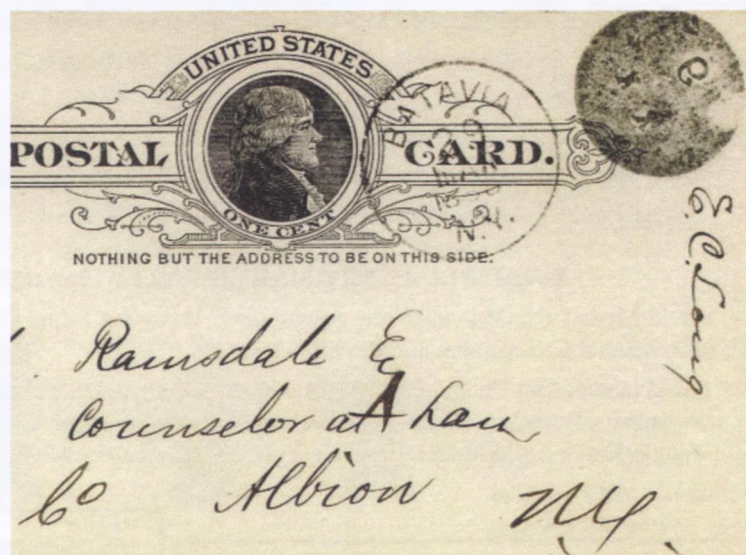 UNITED STATES
POSTAL CARD.
ONE CENT
NOTHING BUT THE ADDRESS TO BE ON THIS SIDE.
BATAVIA
29
N.Y.
E. C. Long
Ramsdale Esq
Counselor at Law
Co Albion N.Y.